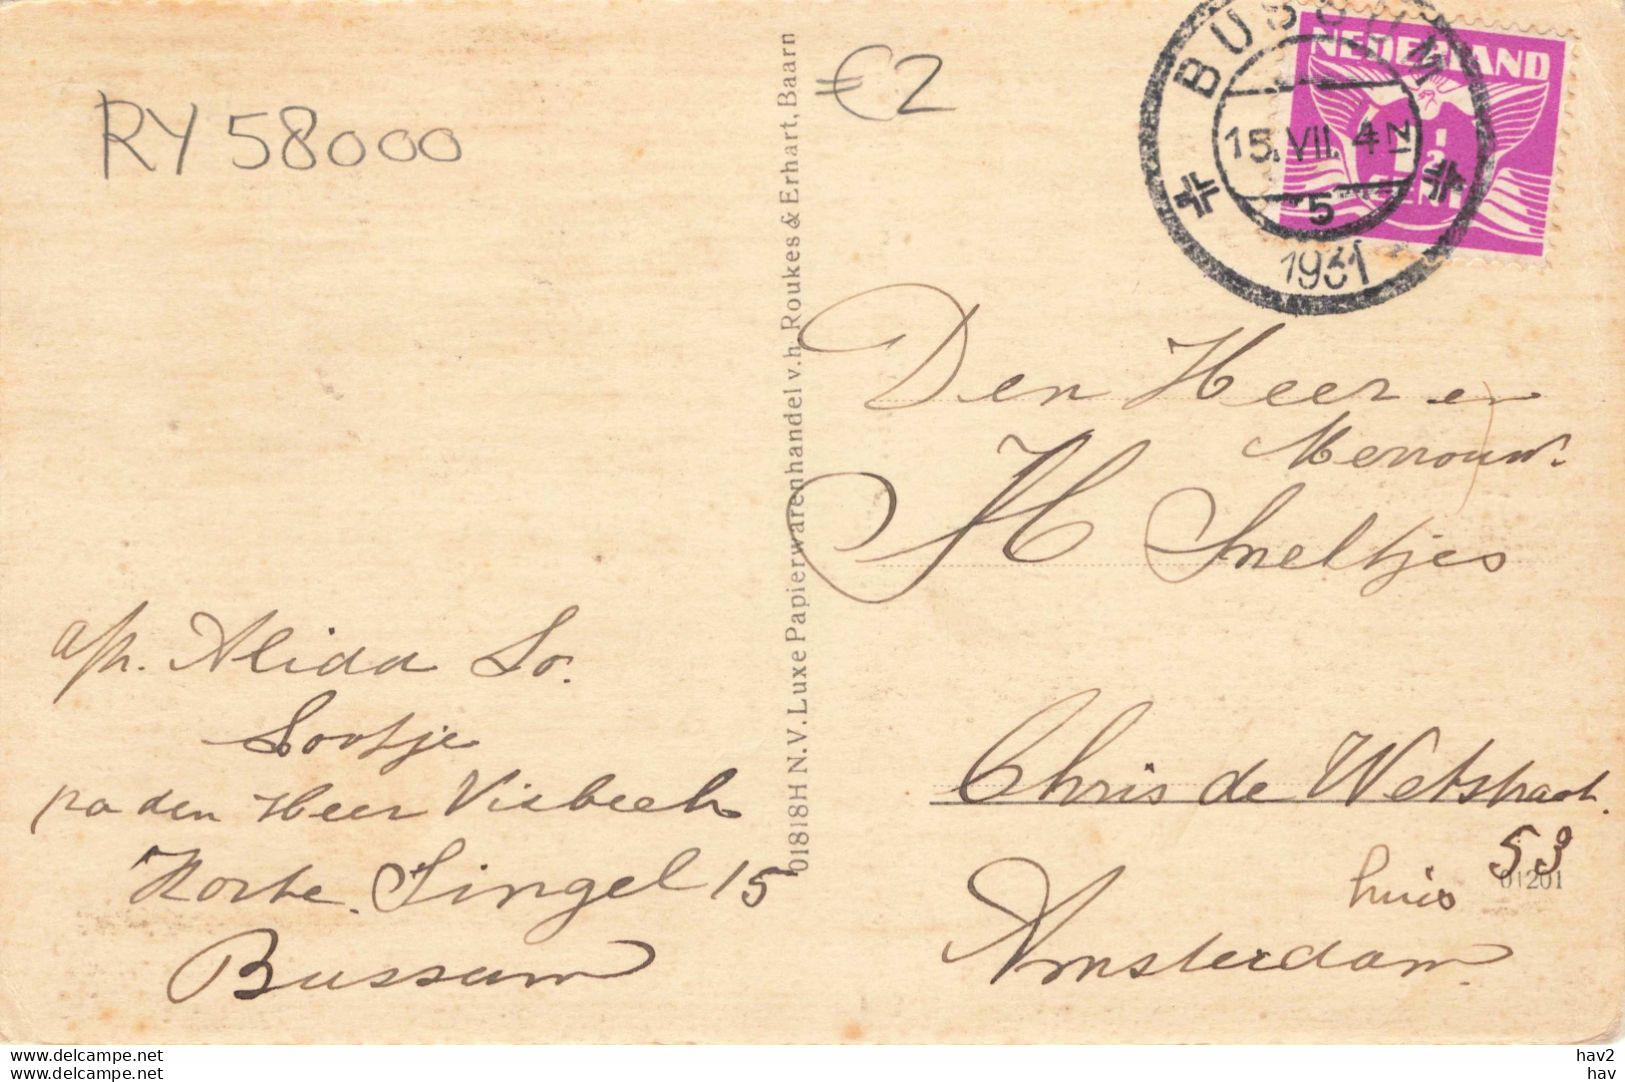 RY 58000
€2
BUSSUM
15.VII. 4N
5
1931
NEDERLAND
1/2
CENT
01818H N.V. Luxe Papierwarenhandel v.h. Roukes & Erhart, Baarn
Den Heer en
Mevrouw.
H Sneltjes
Chris de Wetstraat.
53
huis
01201
Amsterdam
afz. Alida
Lootje
p/a den Heer Visbeek
Korte Singel 15
Bussum
www.delcampe.net
www.delcampe.net
hav2
hav